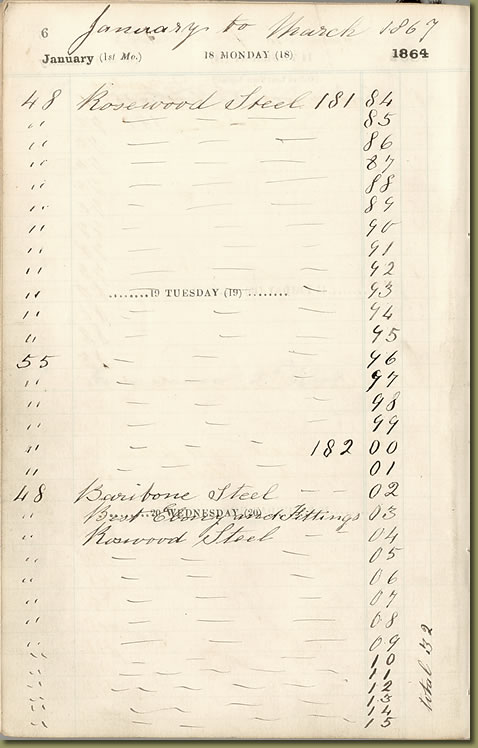 January to March 1867
6
January (1st Mo.) 18 MONDAY (18) 1864
48 Rosewood Steel 181 84
" — — — 85
" — — — 86
" — — — 87
" — — — 88
" — — — 89
" — — — 90
" — — — 91
" — — — 92
" ........19 TUESDAY (19) ........ 93
" — — — 94
" — — — 95
55 — — — 96
" — — — 97
" — — — 98
" — — — 99
" — — — 182 00
" — — — 01
48 Baribone Steel — — 02
" Best Ebony and Fittings 03
........20 WEDNESDAY (20)
" Rosewood Steel — 04
" — — — 05
" — — — 06
" — — — 07
" — — — 08
" — — — 09
" — — — 10
" — — — 11
" — — — 12
" — — — 13
" — — — 14
" — — — 15
total 32